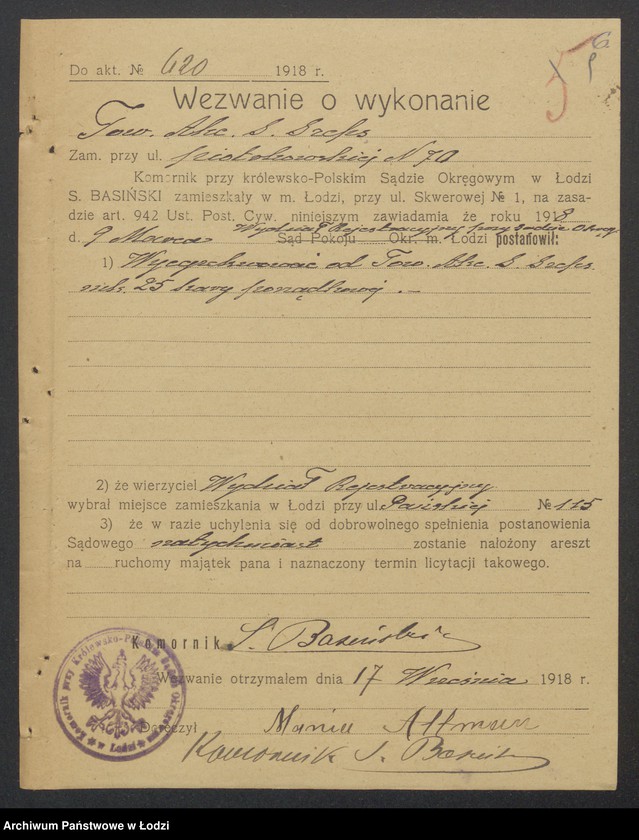 6.
5
Do akt. № 620 1918 r.
Wezwanie o wykonanie
Tow. Akc. S.
Zam. przy ul. Piotrkowskiej N 70
Komornik przy królewsko-Polskim Sądzie Okręgowym w Łodzi
S. BASIŃSKI zamieszkały w m. Łodzi, przy ul. Skwerowej № 1, na zasa-
dzie art. 942 Ust. Post. Cyw. niniejszem zawiadamia że roku 1918
Wydział Rejestracyjny przy Sądzie Okręg.
d. 9 Marca Sąd Pokoju Okr. m. Łodzi postanowił:
1) Wyegzekwować od Tow. Akc. S.
mk. 25 kary porządkowej. —
2) że wierzyciel Wydział Rejestracyjny
wybrał miejsce zamieszkania w Łodzi przy ul. Pańskiej № 115
3) że w razie uchylenia się od dobrowolnego spełnienia postanowienia
Sądowego natychmiast zostanie nałożony areszt
na ruchomy majątek pana i naznaczony termin licytacji takowego.
Komornik S. Basiński
Wezwanie otrzymałem dnia 17 Września 1918 r.
Doręczył
Komornik S. Basiń
Komornik przy Królewsko-Polskim Sądzie Okręgowym
w Łodzi
BASIŃSKI
Archiwum Państwowe w Łodzi